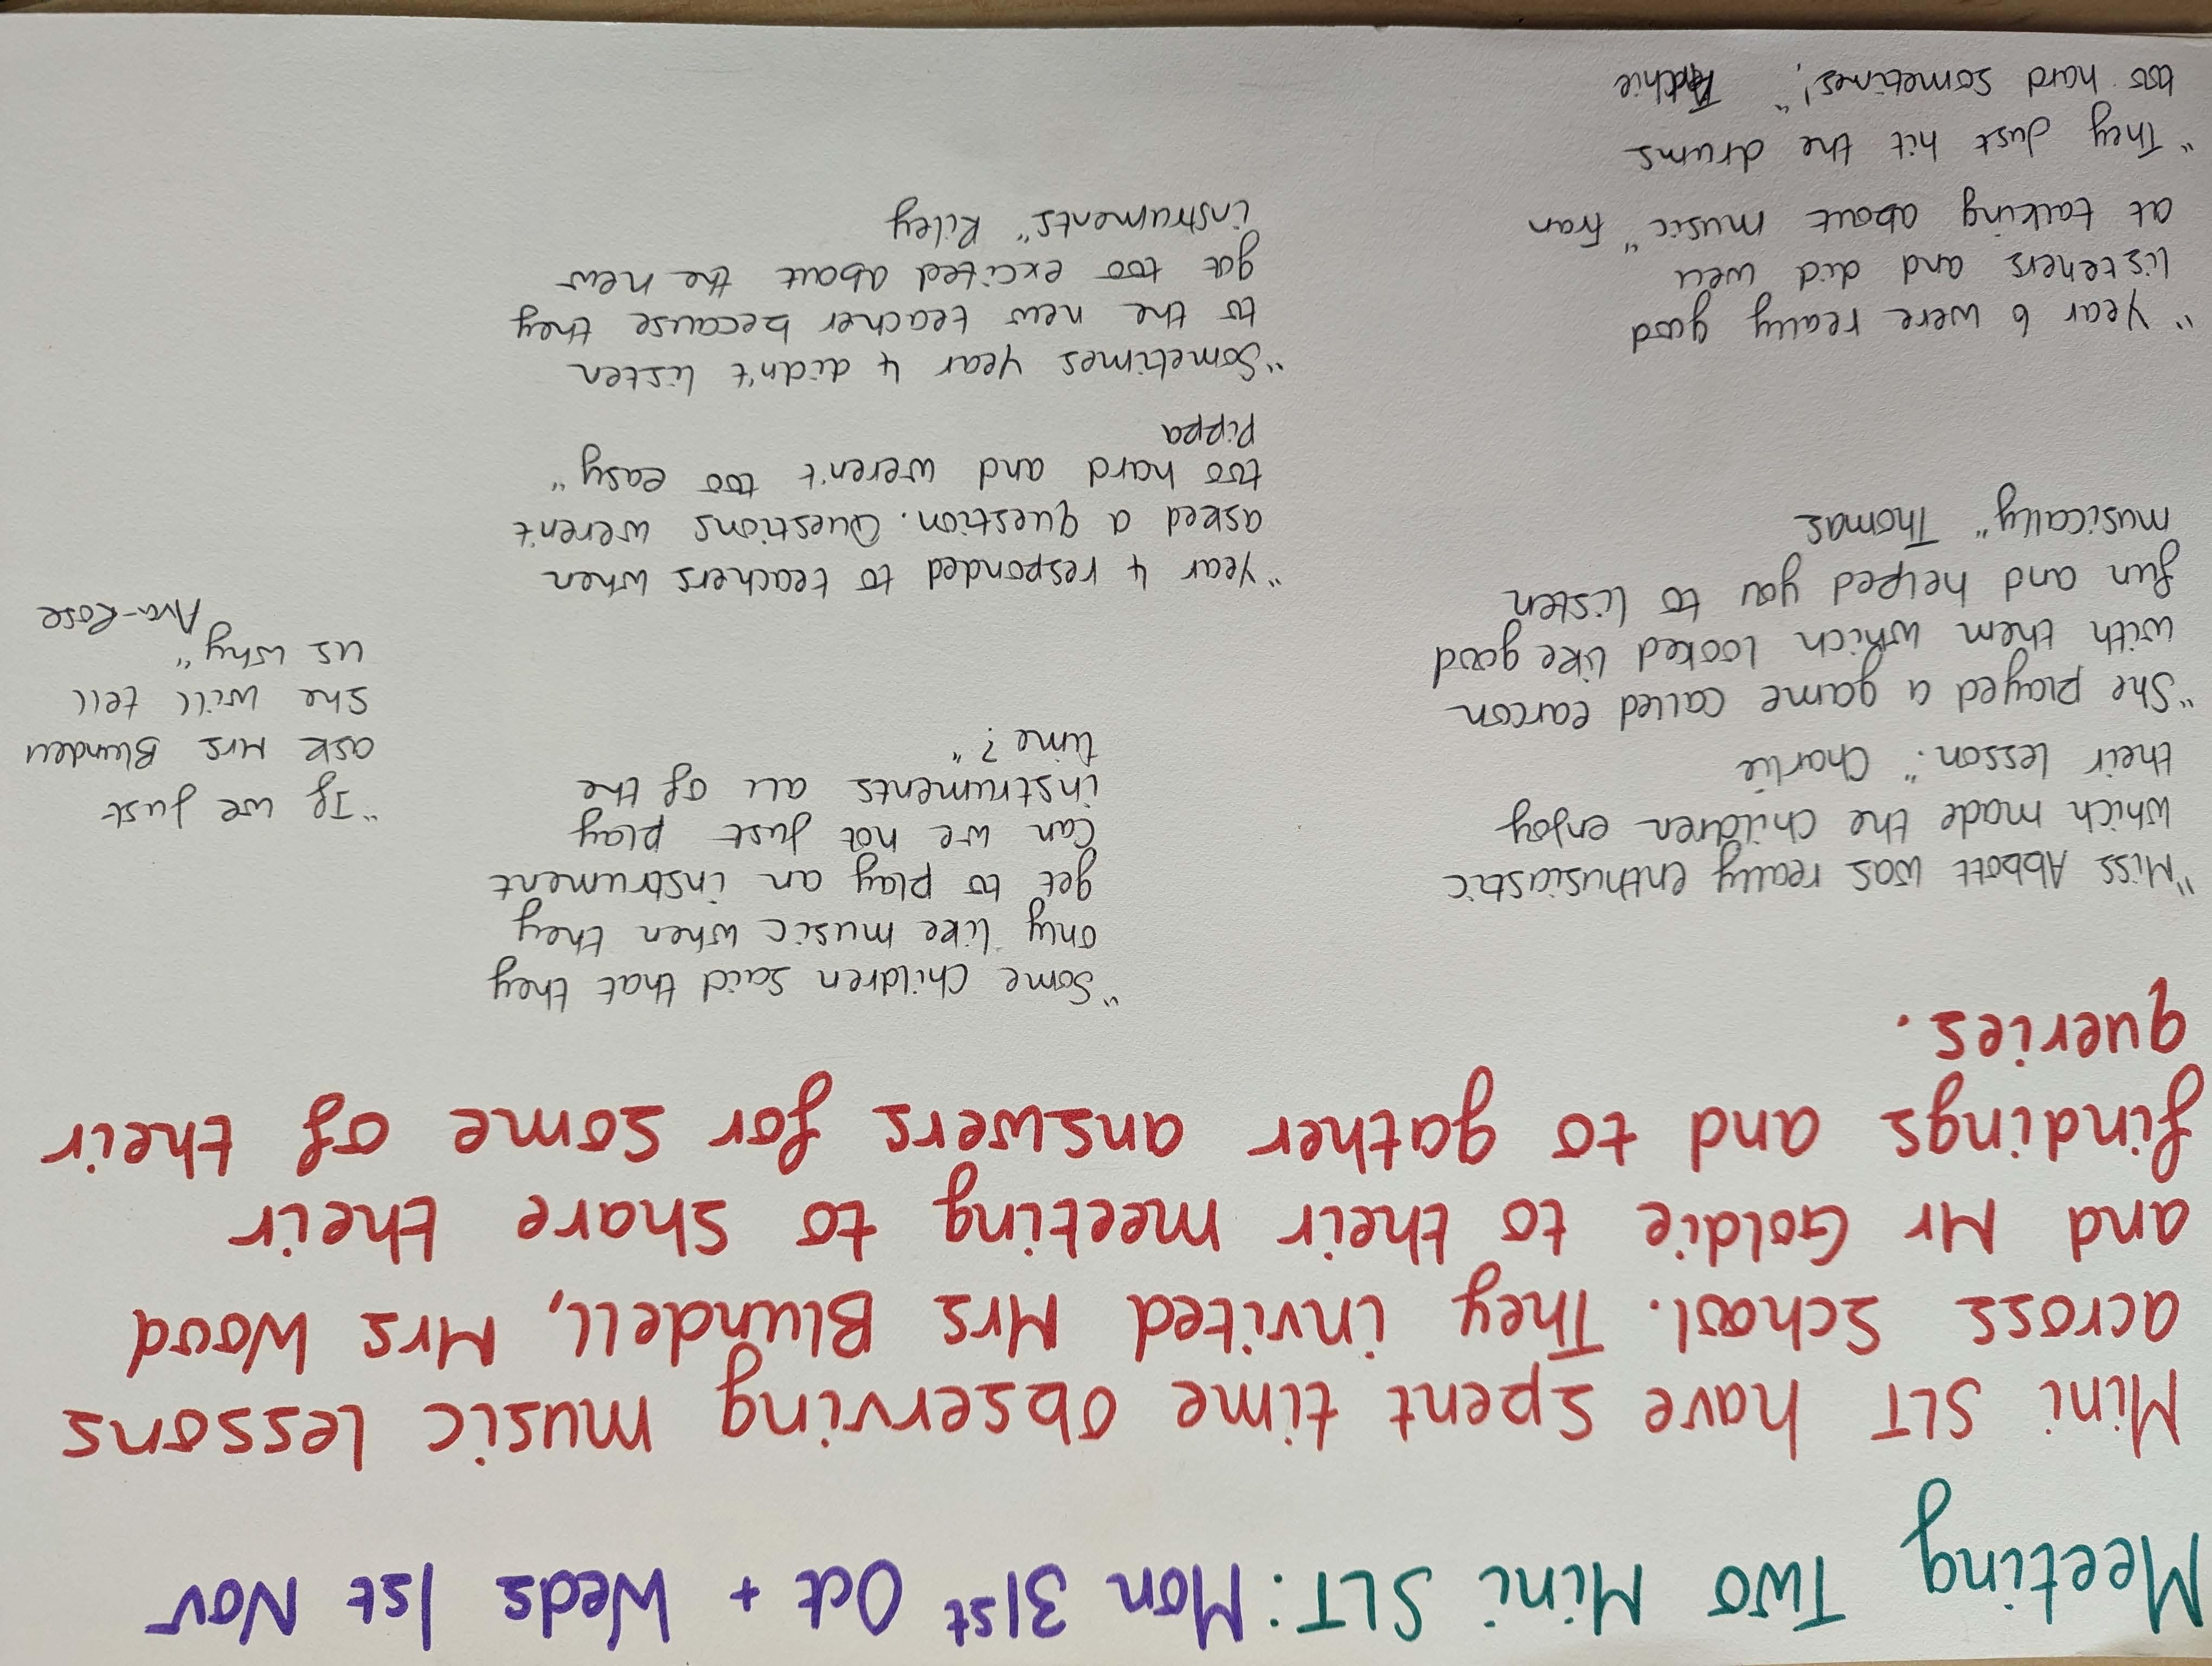 Meeting Two Mini SLT: Mon 31st Oct + Weds 1st Nov
Mini SLT have spent time observing music lessons
across school. They invited Mrs Blundell, Mrs Wood
and Mr Goldie to their meeting to share their
findings and to gather answers for some of their
queries.
"Miss Abbott was really enthusiastic
which made the children enjoy
their lesson." Charlie
"She played a game called earcon
with them which looked like good
fun and helped you to listen
musically" Thomas
"Year 6 were really good
listeners and did well
at talking about music" Fran
"They just hit the drums
too hard sometimes!" Archie
"Some children said that they
only like music when they
get to play an instrument
can we not just play
instruments all of the
time?"
"Year 4 responded to teachers when
asked a question. Questions weren't
too hard and weren't too easy"
Pippa
"Sometimes Year 4 didn't listen
to the new teacher because they
got too excited about the new
instruments" Riley
"If we just
ask Mrs Blundell
she will tell
us why"
Ava-Rose